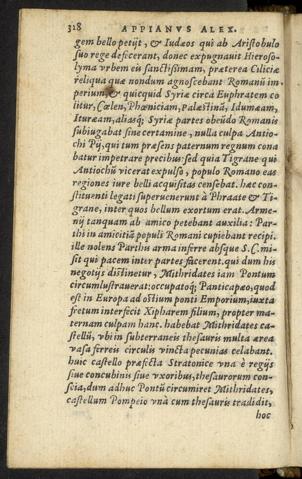 328 APPIANVS ALEX.
gem bello petijt, & Iudæos qui ab Aristobulo
suo rege defecerant, donec expugnauit Hieroso-
lyma vrbem eis sanctissimam, præterea Ciliciæ
reliqua quæ nondum agnoscebant Romanū im-
perium, & quicquid Syriæ circa Euphratem co
litur, Cœlen, Phœniciam, Palæstinā, Idumæam,
Ituræam, aliasq; Syriæ partes obeūdo Romanis
subiugabat sine certamine, nulla culpa Antio-
chi Pij, qui tum præsens paternum regnum cona
batur impetrare precibus: sed quia Tigrane qui
Antiochū vicerat expulso, populo Romano eas
regiones iure belli acquisitas censebat. hæc con-
stituenti legati superuenerunt à Phraate & Ti-
grane, inter quos bellum exortum erat. Arme-
nij tanquam ab amico petebant auxilia: Par-
thi in amicitiā populi Romani cupiebant recipi.
ille nolens Parthis arma inferre absque S.C. mi-
sit qui pacem inter partes facerent. qui dum his
negotijs distinetur, Mithridates iam Pontum
circumlustrauerat: occupatoq; Panticapæo, quod
est in Europa ad ostium ponti Emporium, iuxta
fretum interfecit Xipharem filium, propter ma-
ternam culpam hanc. habebat Mithridates ca-
stellū, vbi in subterraneis thesauris multa ærea
vasa ferreis circulis vincta pecunias celabant.
huic castello præfecta Stratonice vna è regijs
siue concubinis siue vxoribus, thesaurorum con-
scia, dum adhuc Pontū circumiret Mithridates,
castellum Pompeio vnà cum thesauris tradidit,
hoc